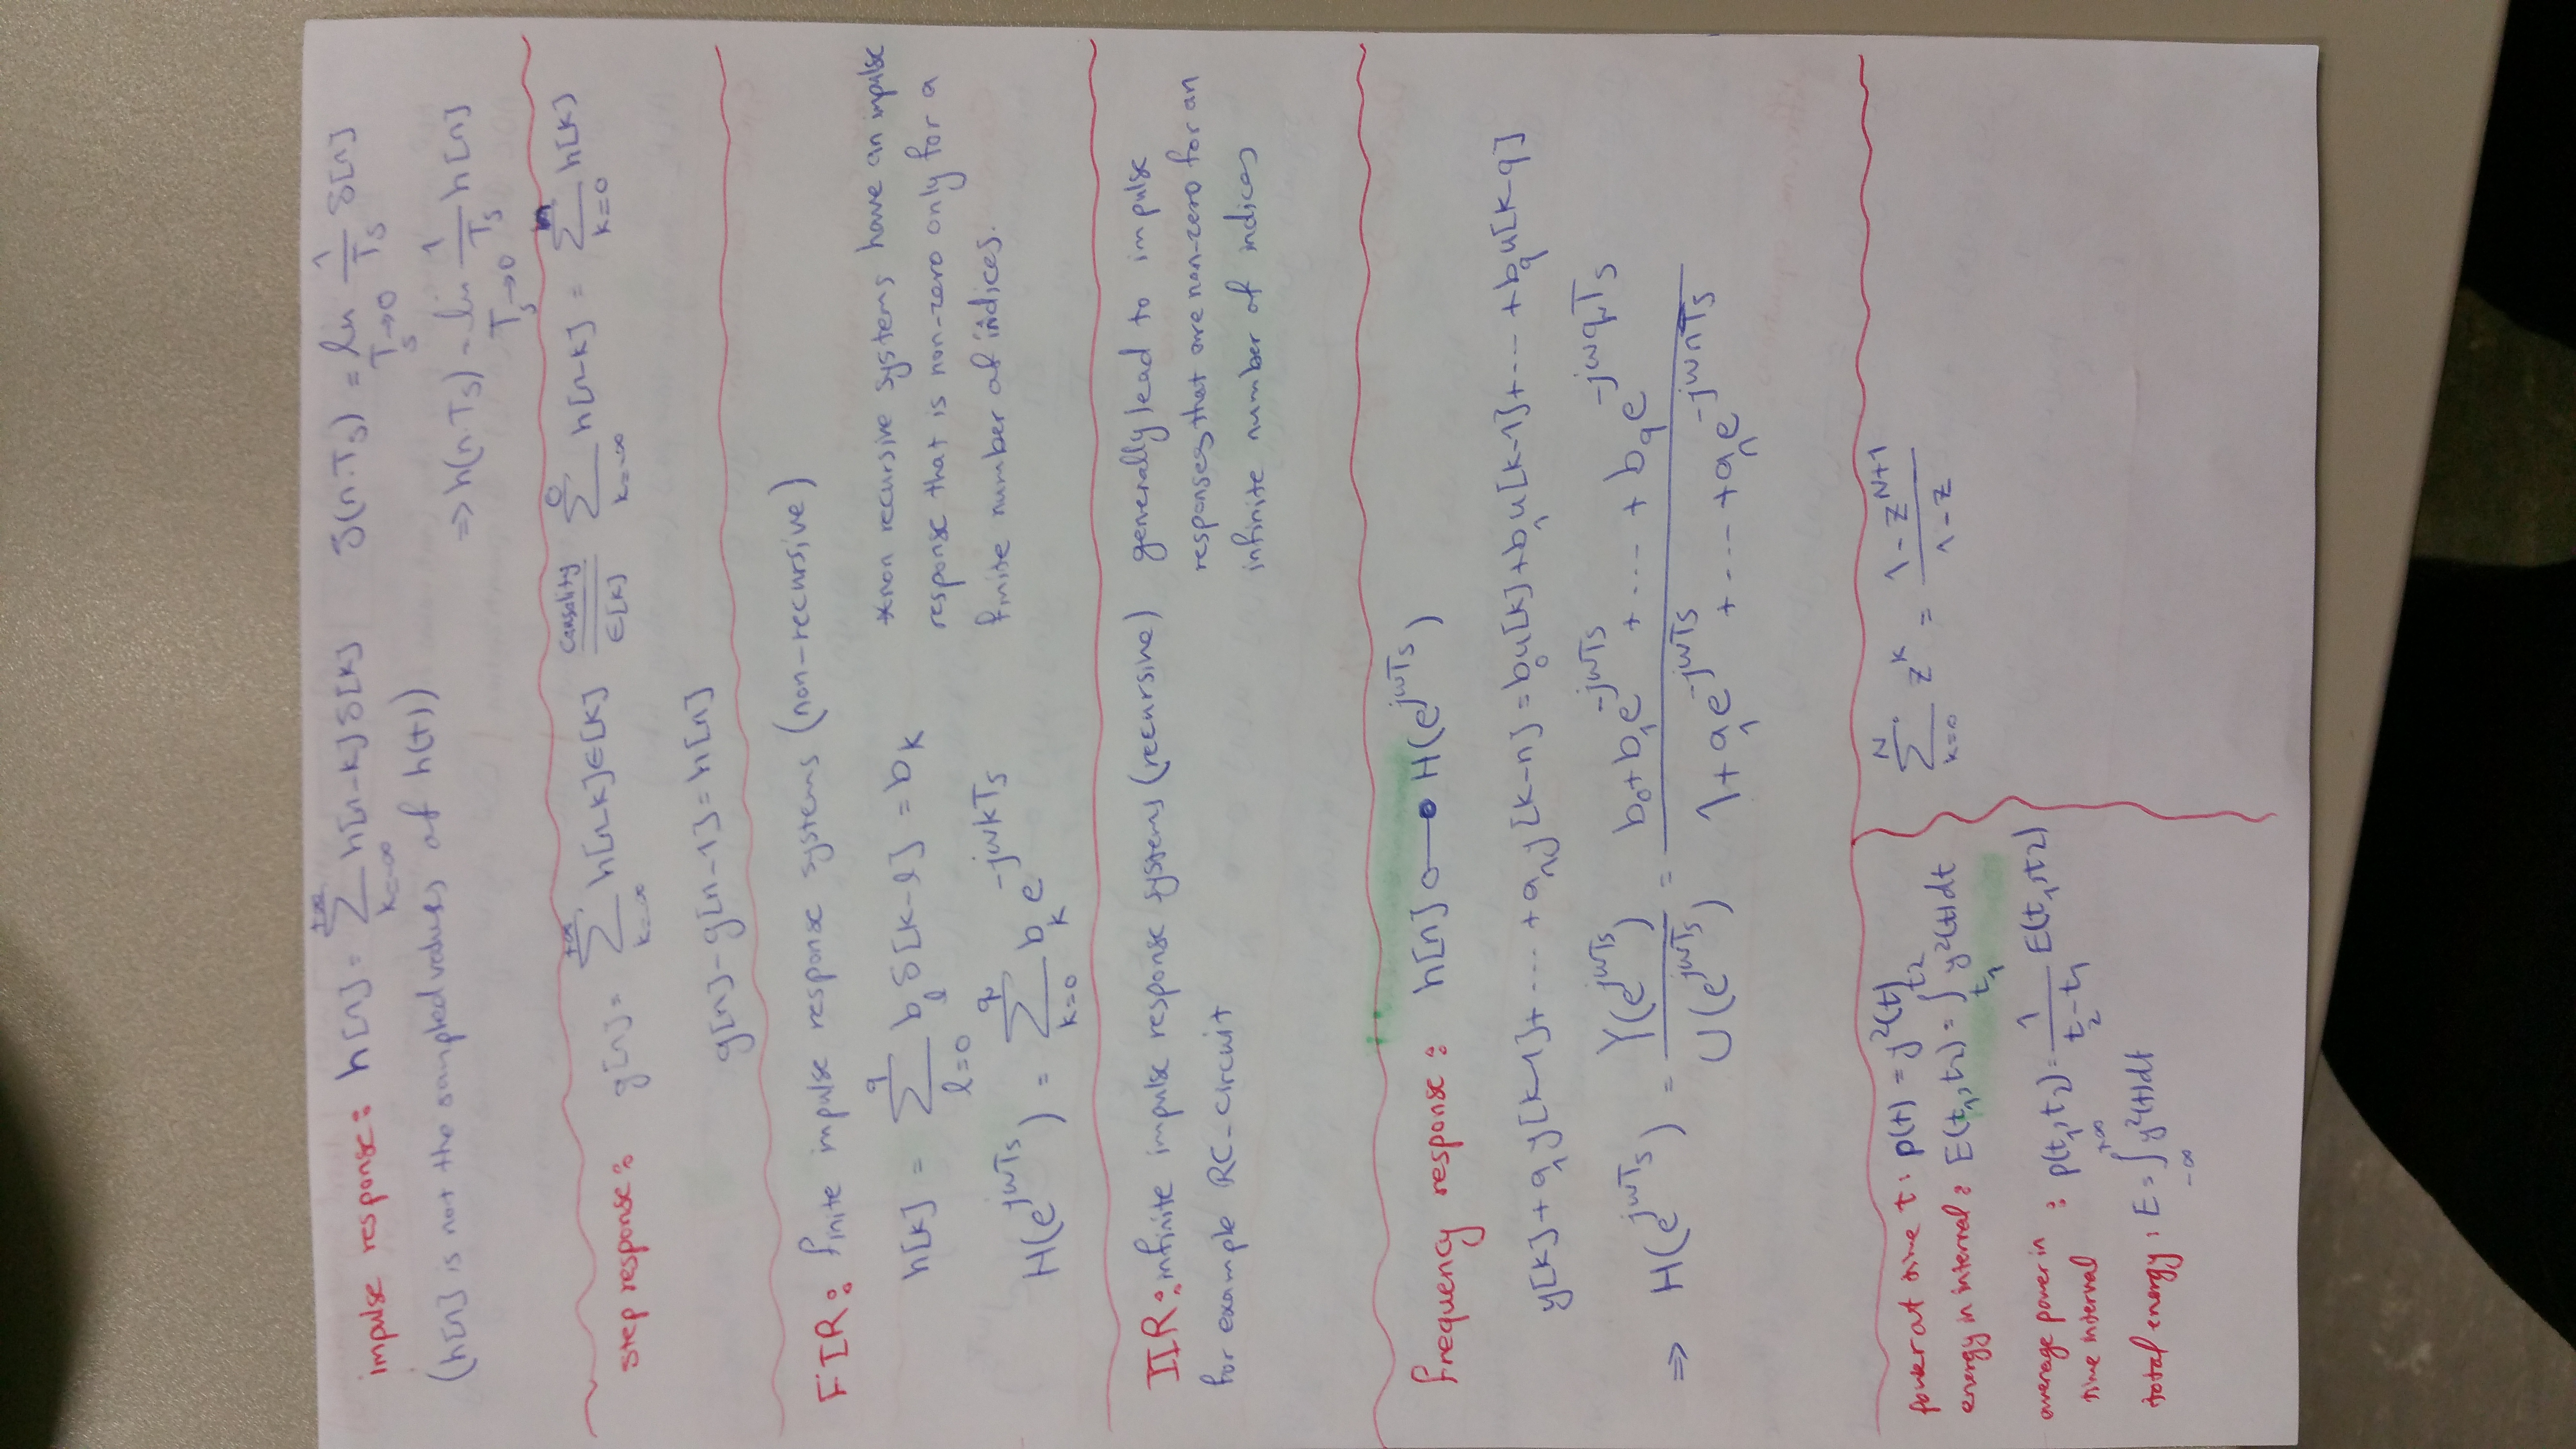 impulse response: h[n] = \sum_{k=-∞}^{+∞} h[n-k] δ[k]   δ(n.T_s) = lim_{T_s→0} 1/T_s δ[n]
(h[n] is not the sampled values of h(t))   ⇒ h(n.T_s) = lim_{T_s→0} 1/T_s h[n]
step response: g[n] = \sum_{k=-∞}^{+∞} h[n-k] ∈[k] =(Causality / ∈[k]) \sum_{k=-∞}^{0} h[n-k] = \sum_{k=0}^{n} h[k]
g[n] - g[n-1] = h[n]
FIR: finite impulse response systems (non-recursive)
h[k] = \sum_{l=0}^{q} b_l δ[k-l] = b_k
H(e^{jωT_s}) = \sum_{k=0}^{q} b_k e^{-jωkT_s}
*non recursive systems have an impulse
response that is non-zero only for a
finite number of indices.
IIR: infinite impulse response systems (recursive)
for example RC-circuit
generally lead to impulse
responses that are non-zero for an
infinite number of indices
frequency response: h[n] ○—● H(e^{jωT_s})
y[k] + a_1 y[k-1] + .... + a_n y[k-n] = b_0 u[k] + b_1 u[k-1] + ... + b_q u[k-q]
⇒ H(e^{jωT_s}) = Y(e^{jωT_s}) / U(e^{jωT_s}) = (b_0 + b_1 e^{-jωT_s} + .... + b_q e^{-jωqT_s}) / (1 + a_1 e^{-jωT_s} + .... + a_n e^{-jωnT_s})
power at time t: p(t) = y²(t)
energy in interval: E(t_1, t_2) = ∫_{t_1}^{t_2} y²(t) dt
average power in
time interval : p(t_1, t_2) = 1/(t_2 - t_1) E(t_1, t_2)
total energy: E = ∫_{-∞}^{+∞} y²(t) dt
\sum_{k=0}^{N} z^k = (1 - z^{N+1}) / (1 - z)